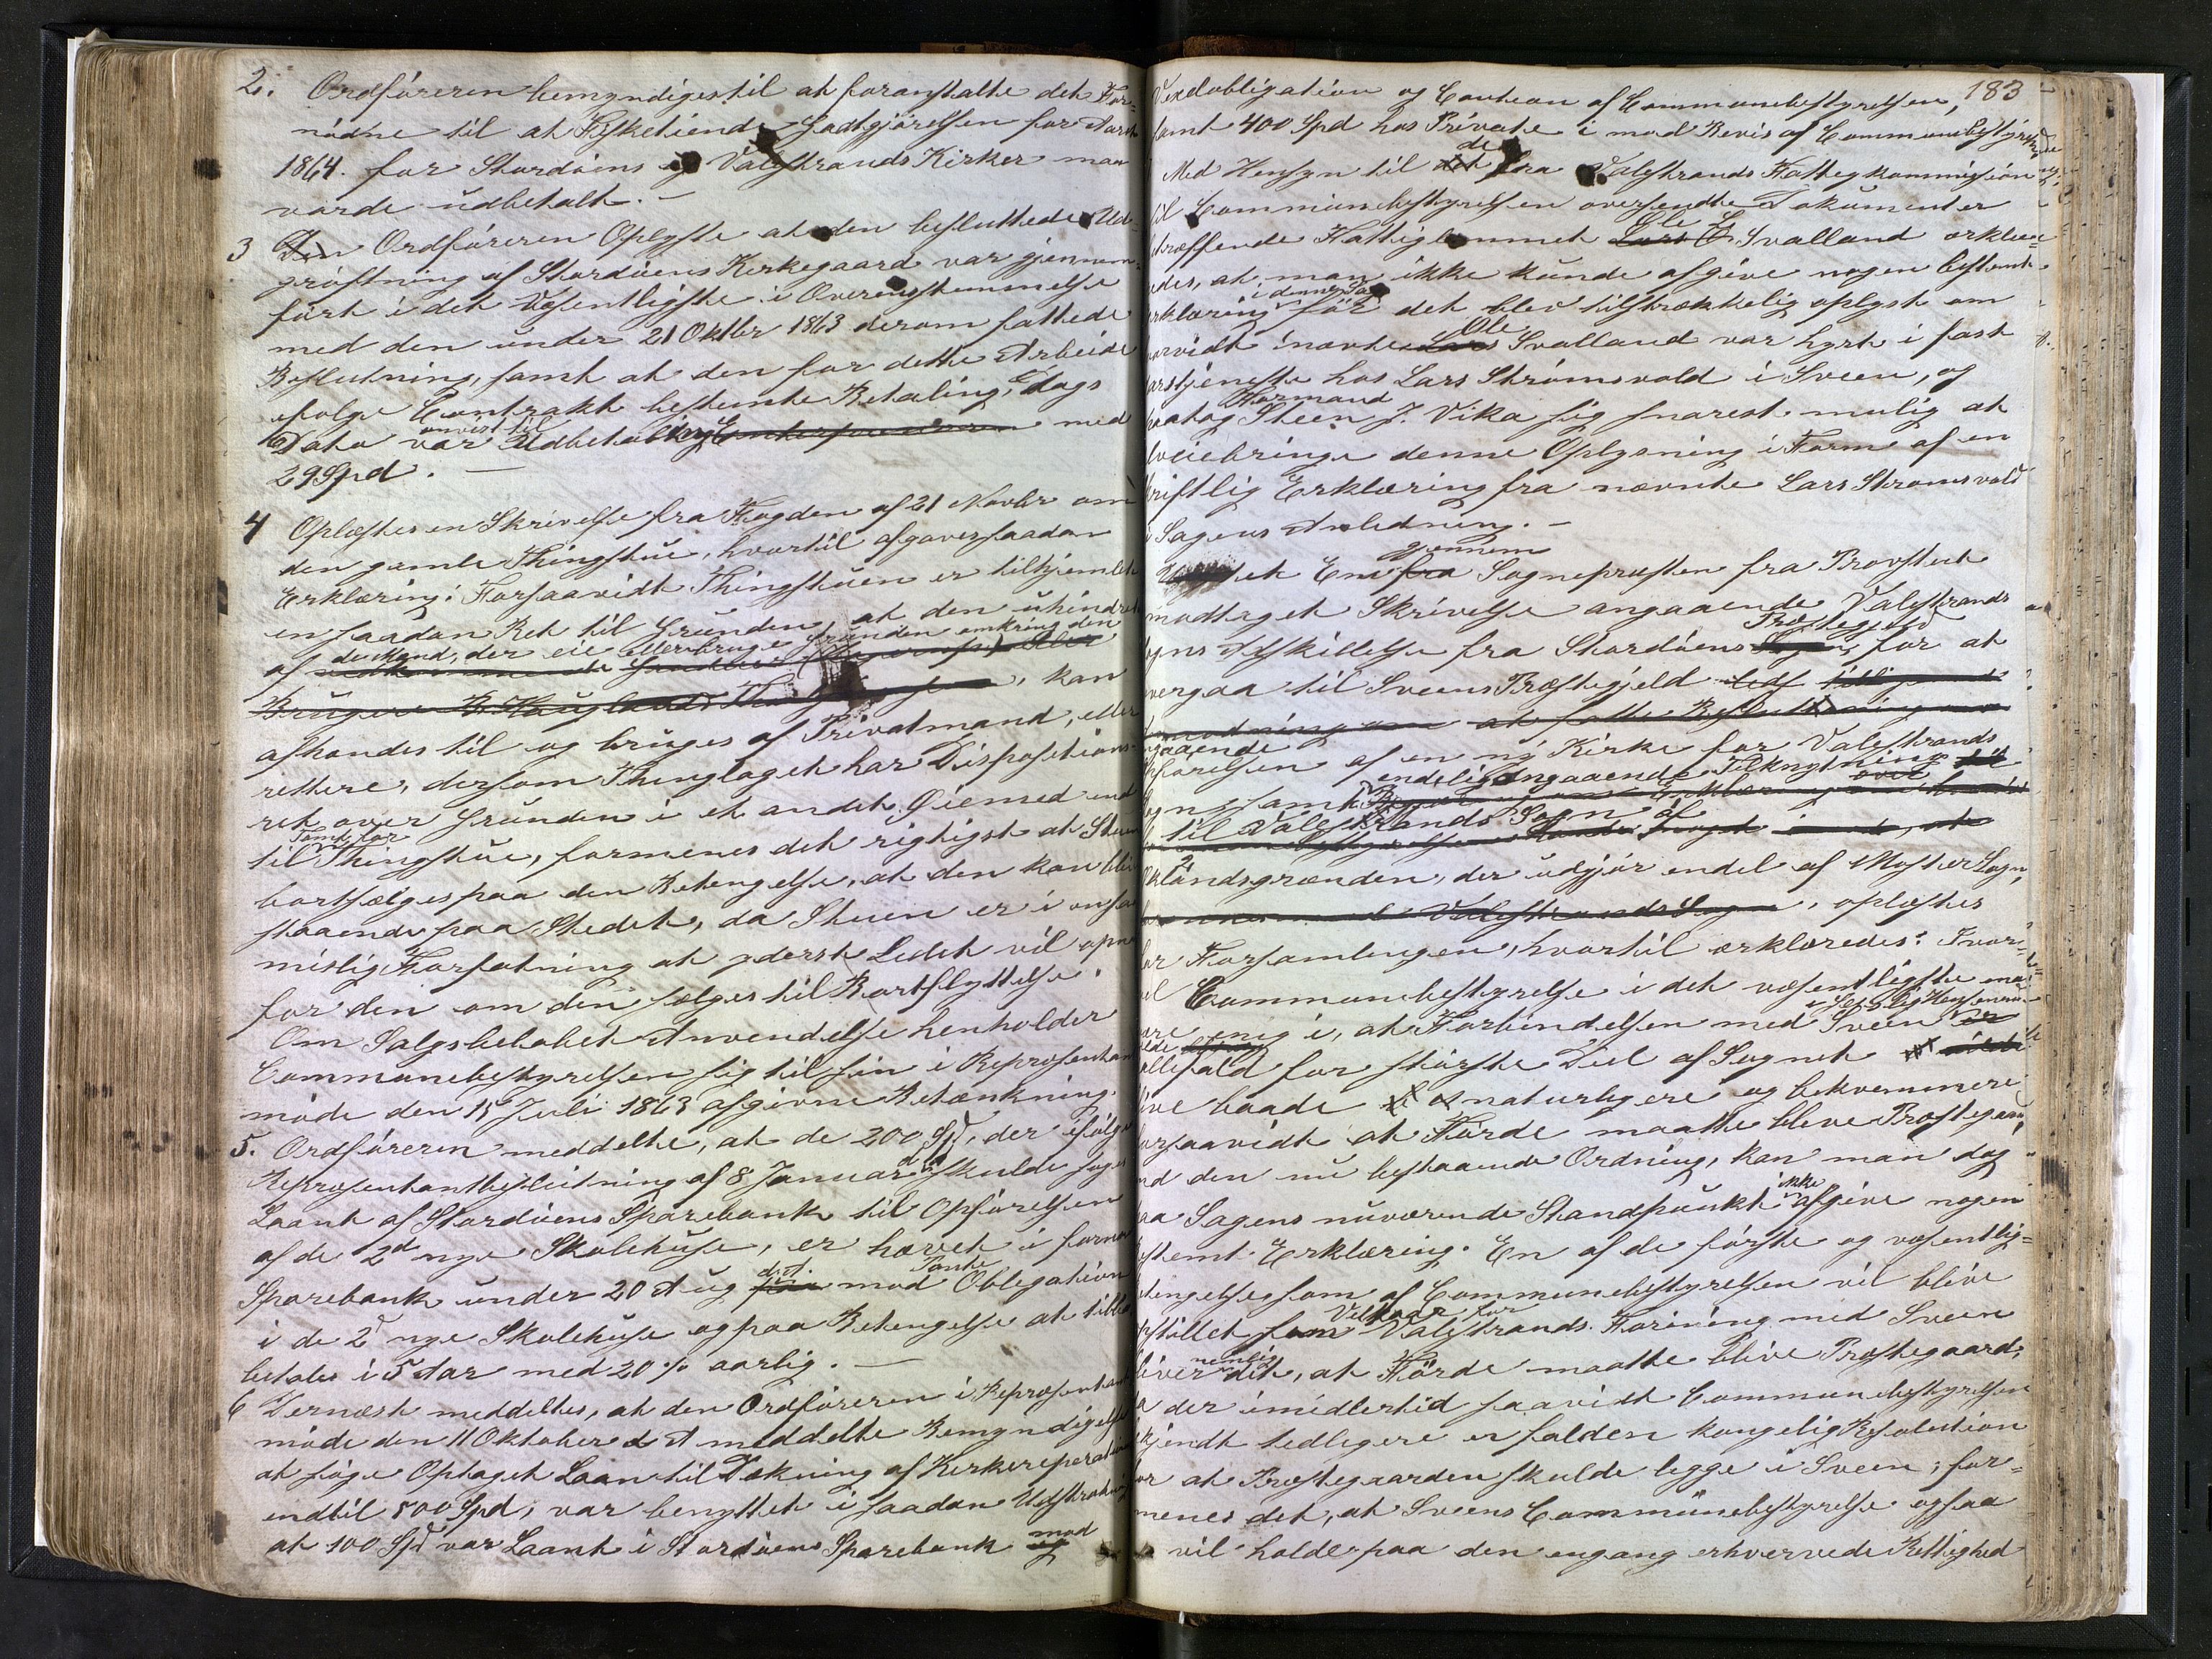 2. Ordføreren bemyndiges til at foranstalte det For=
nødne til at Fisketiende Godtgjørelsen for Aaret
1864. for Stordøens og Valestrands Kirker maa
vorde udbetalt. –
3 Den Ordføreren Oplyste at den besluttede Ud=
grøftning af Stordøens Kirkegaard var gjennem=
ført i det Væsentligste i Overensstemmelse
med den under 21 Oktbr 1863 derom fattede
Beslutning, samt at den for dette Arbeide
ifølge Contrakt bestemte Betaling, dags
anvist til
Dato var Udbetaling med
29 Spd. —
4 Oplæstes en Skrivelse fra Fogden af 21 Novbr om
den gamle Thingstue, hvortil afgaves saadan
Erklæring: Forsaavidt Thingstuen er tilhjemlet
en saadan Ret til Grunden, at den uhindret
de Mænd, der eie eller bruge Grunden omkring den
af
, kan
afhændes til og bruges af Privatmand, eller
rettere, dersom Thinglaget har Dispositions=
ret over Grunden i et andet Øiemed end
Tomt for
til Thingstue, formenes det rigtigst at Stuen
bortsælges paa den Betengelse, at den kan blive
staaende paa Stedet, da Stuen er i en saa
mislig Forfatning at yderst Lidet vil opnaaes
for den om den sælges til Bortflyttelse.
Om Salgsbeløbet Anvendelse henholder
Communebestyrelsen sig til sin i Repræsentant
møde den 15 Juli 1863 afgivne Betænkning.
5. Ordføreren meddelte, at de 200 Spd, der ifølge
Repræsentantbeslutning af 8 Januar d A skulde søges
Laant af Stordøens Sparebank til Opførelsen
af de 2de nye Skolehuse, er hævet i fornævnte
Sparebank under 20 Aug d.A. mod Pante Obligation
i de 2de nye Skolehuse og paa Betengelse at tilbage
betales i 5 Aar med 20 % aarlig. —
6 Dernæst meddeltes, at den Ordføreren i Repræsentant
møde den 11 Oktober d A meddelte Bemyndigelse
at søge Optaget Laan til Dækning af Kirkereparation
indtil 500 Spd, var benyttet i saadan Udstrækning
at 100 Spd var Laant i Stordøens Sparebank mod
183
Vexelobligation og Caution af Communebestyrelsen,
samt 400 Spd hos Private i mod Bevis af Communebestyrelsen
de
Med Hensyn til det fra Valestrands Fattigkommission
til Communebestyrelsen oversendte Dokumenter
Ole E.
træffende Fattiglemmet Lars E Svalland erklæ=
redes, at man ikke kunde afgive nogen bestemt
i denne Sag
Erklæring før det blev tilstrækkelig oplyst om
Ole
hvorvidt nævnte Lars Svalland var hyrt i fast
Aarstjeneste hos Lars Strømsvold i Sveen, og
Formand
paatog Steen J. Vika sig snarest mulig at
tilveiebringe denne Oplysning i Form af en
skriftlig Erklæring fra nævnte Lars Strømsvold
i Sagens Anledning. –
gjennem
et En fra Sognepræsten fra Provstiet
modtaget Skrivelse angaaende Valestrands
Præstegjeld
Sogns Adskillelse fra Stordøens for at
overgaa til Sveens Præstegjeld
at fatte Beslutning om
angaaende
Opførelsen af en ny Kirke for Valestrands
endelig Angaaende Tilknytning
Sogn samt
til Valestrands Sogn af
landsgrænden, der udgjør endel af Moster Sogn,
Valestrands Sogn, oplæstes
for Forsamlingen, hvortil erklæredes: Hvor=
vel Communebestyrelse i det væsentligste maa
være enig i, at Forbindelsen med Sveen
ialfald for største Deel af Sognet vilde
blive baade naturligere og bekvemmere
forsaavidt at Førde maatte bleve Præstegaard,
end den nu bestaaende Ordning, kan man dog
ikke
paa Sagens nuværende Standpunkt afgive nogen
bestemt Erklæring. En af de første og væsentlig=
Betingelser som af Communebestyrelsen vil blive
Vilkaar for
opstillet som Valestrands Forening med Sveen
nemlig
bliver det, at Førde maatte blive Præstegaard;
da der imidlertid saavidt Communebestyrelsen
bekjendt tidligere er falden kongelig Resolution
for at Præstegaarden skulde legge i Sveen; for=
menes det, at Sveens Communebestyrelse ogsaa
vil holde paa den engang erhvervede Rettighed